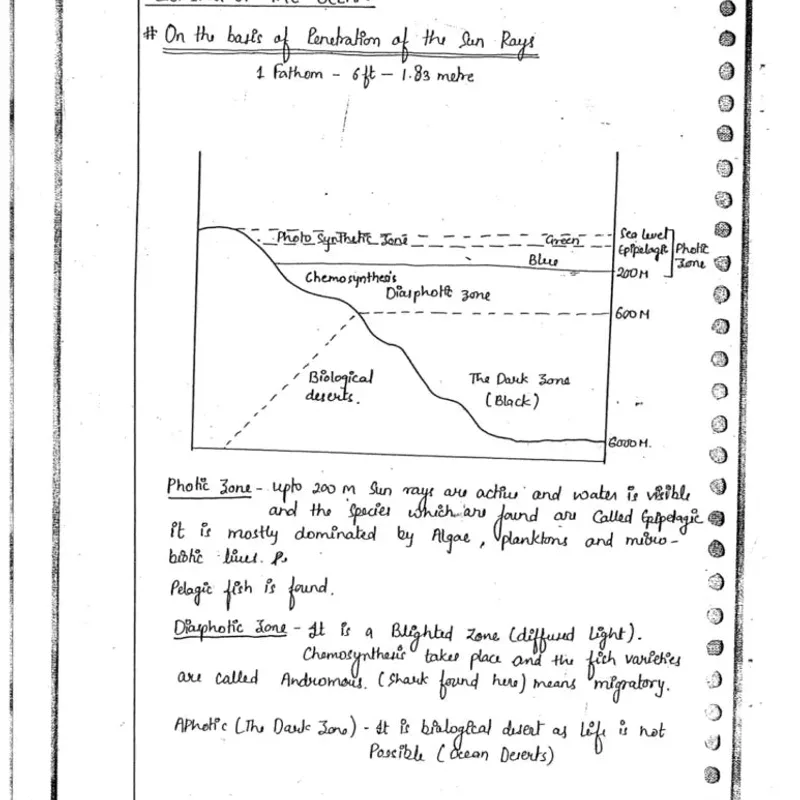 # On the basis of Penetration of the Sun Rays
1 Fathom - 6ft - 1.83 metre
Photo Synthetic Zone
Green
Sea level
Epipelagic
Photic Zone
Blue
200M
Chemosynthesis
Diasphotic zone
600M
Biological deserts.
The Dark Zone
(Black)
6000M.
Photic Zone - upto 200 m Sun rays are active and water is visible
and the species which are found are Called Epipelagic
it is mostly dominated by Algae, planktons and micro-
biotic lives.
Pelagic fish is found.
Diasphotic Zone - It is a Blighted Zone (diffused Light).
Chemosynthesis takes place and the fish varieties
are called Andromous. (Shark found here) means migratory.
Aphotic (The Dark Zone) - It is biological desert as life is not
Possible (Ocean Deserts)